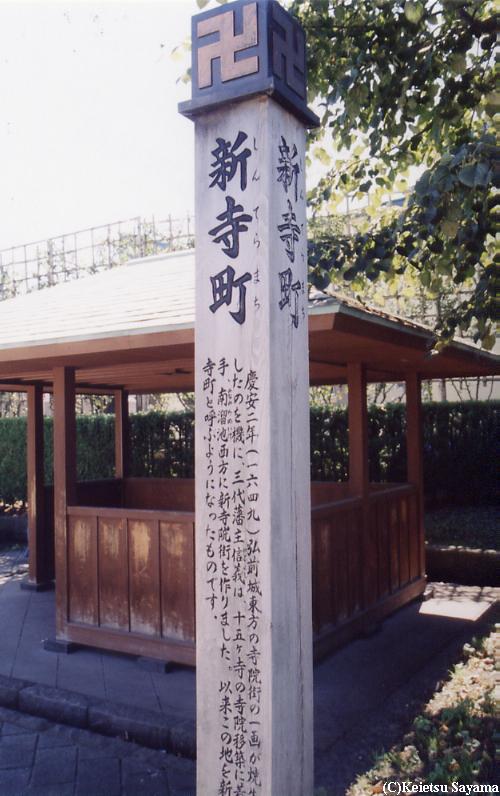 新寺町
しんてらまち
慶安二年(一六四九)弘前城東方の寺院街の一画が焼失
したのを機に、三代藩主信義は、十五ヶ寺の寺院移築に着
手、南溜池西方に新寺院街を作りました。以来この地を新
寺町と呼ぶようになったものです。
新寺町
(C)Keietsu Sayama